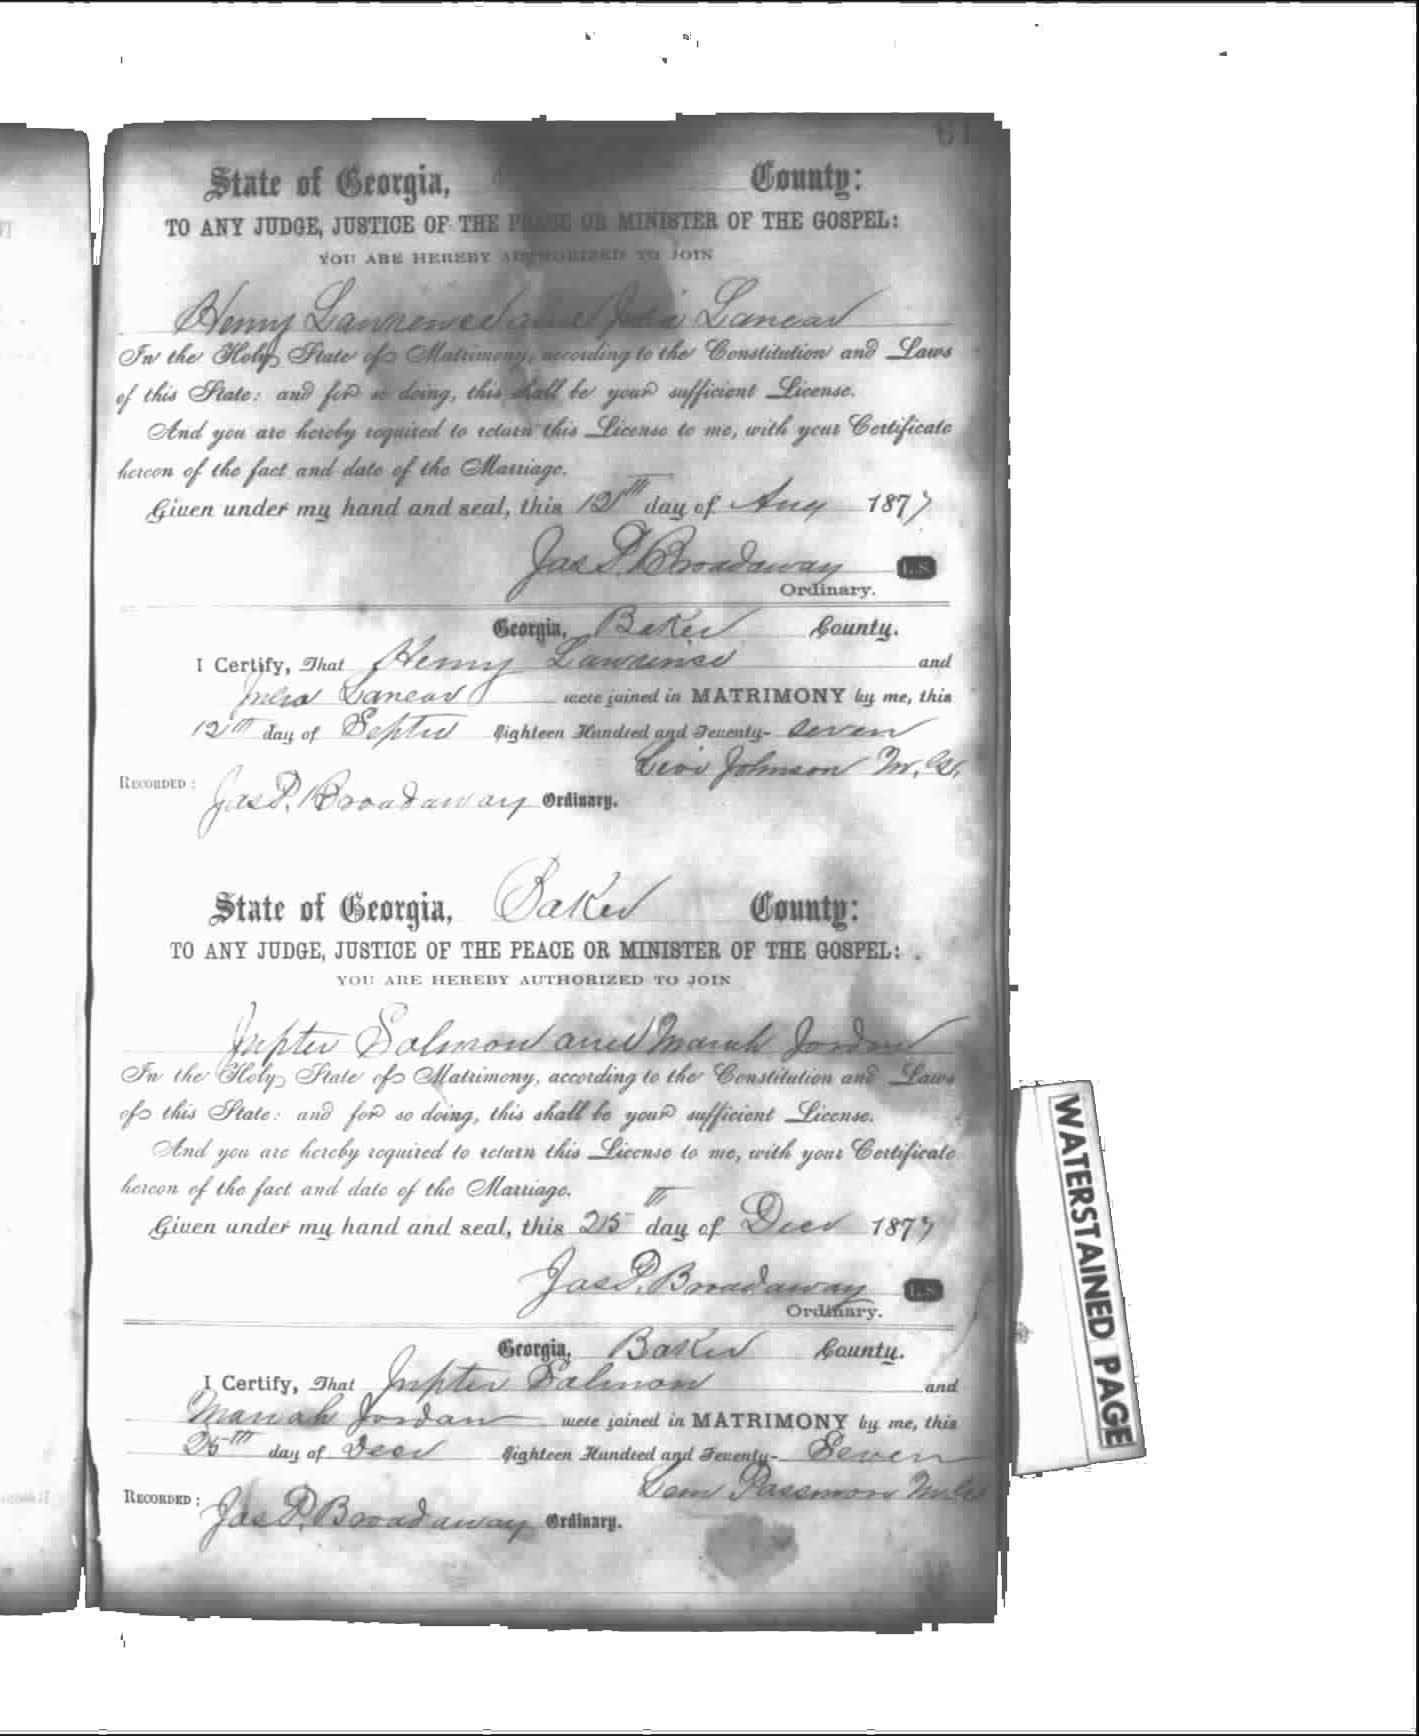 61
State of Georgia, County:
TO ANY JUDGE, JUSTICE OF THE PEACE OR MINISTER OF THE GOSPEL:
YOU ARE HEREBY AUTHORIZED TO JOIN
Henry Lawrence and Julia Lanear
In the Holy State of Matrimony, according to the Constitution and Laws
of this State: and for so doing, this shall be your sufficient License.
And you are hereby required to return this License to me, with your Certificate
hereon of the fact and date of the Marriage.
Given under my hand and seal, this 12th day of Aug 1877
Jas P. Broadaway L.S.
Ordinary.
Georgia, Baker County.
I Certify, That Henry Lawrence and
Julia Lanear were joined in MATRIMONY by me, this
12th day of Septr Eighteen Hundred and Seventy- seven
Levi Johnson M. G.
RECORDED: Jas P. Broadaway Ordinary.
State of Georgia, Baker County:
TO ANY JUDGE, JUSTICE OF THE PEACE OR MINISTER OF THE GOSPEL:
YOU ARE HEREBY AUTHORIZED TO JOIN
Jupter Salmon and Mariah Jordan
In the Holy State of Matrimony, according to the Constitution and Laws
of this State: and for so doing, this shall be your sufficient License.
And you are hereby required to return this License to me, with your Certificate
hereon of the fact and date of the Marriage.
Given under my hand and seal, this 25th day of Decr 1877
Jas P. Broadaway L.S.
Ordinary.
Georgia, Baker County.
I Certify, That Jupter Salmon and
Mariah Jordan were joined in MATRIMONY by me, this
25th day of Decr Eighteen Hundred and Seventy- Seven
Lem Passmore
RECORDED: Jas P. Broadaway Ordinary.
WATERSTAINED PAGE